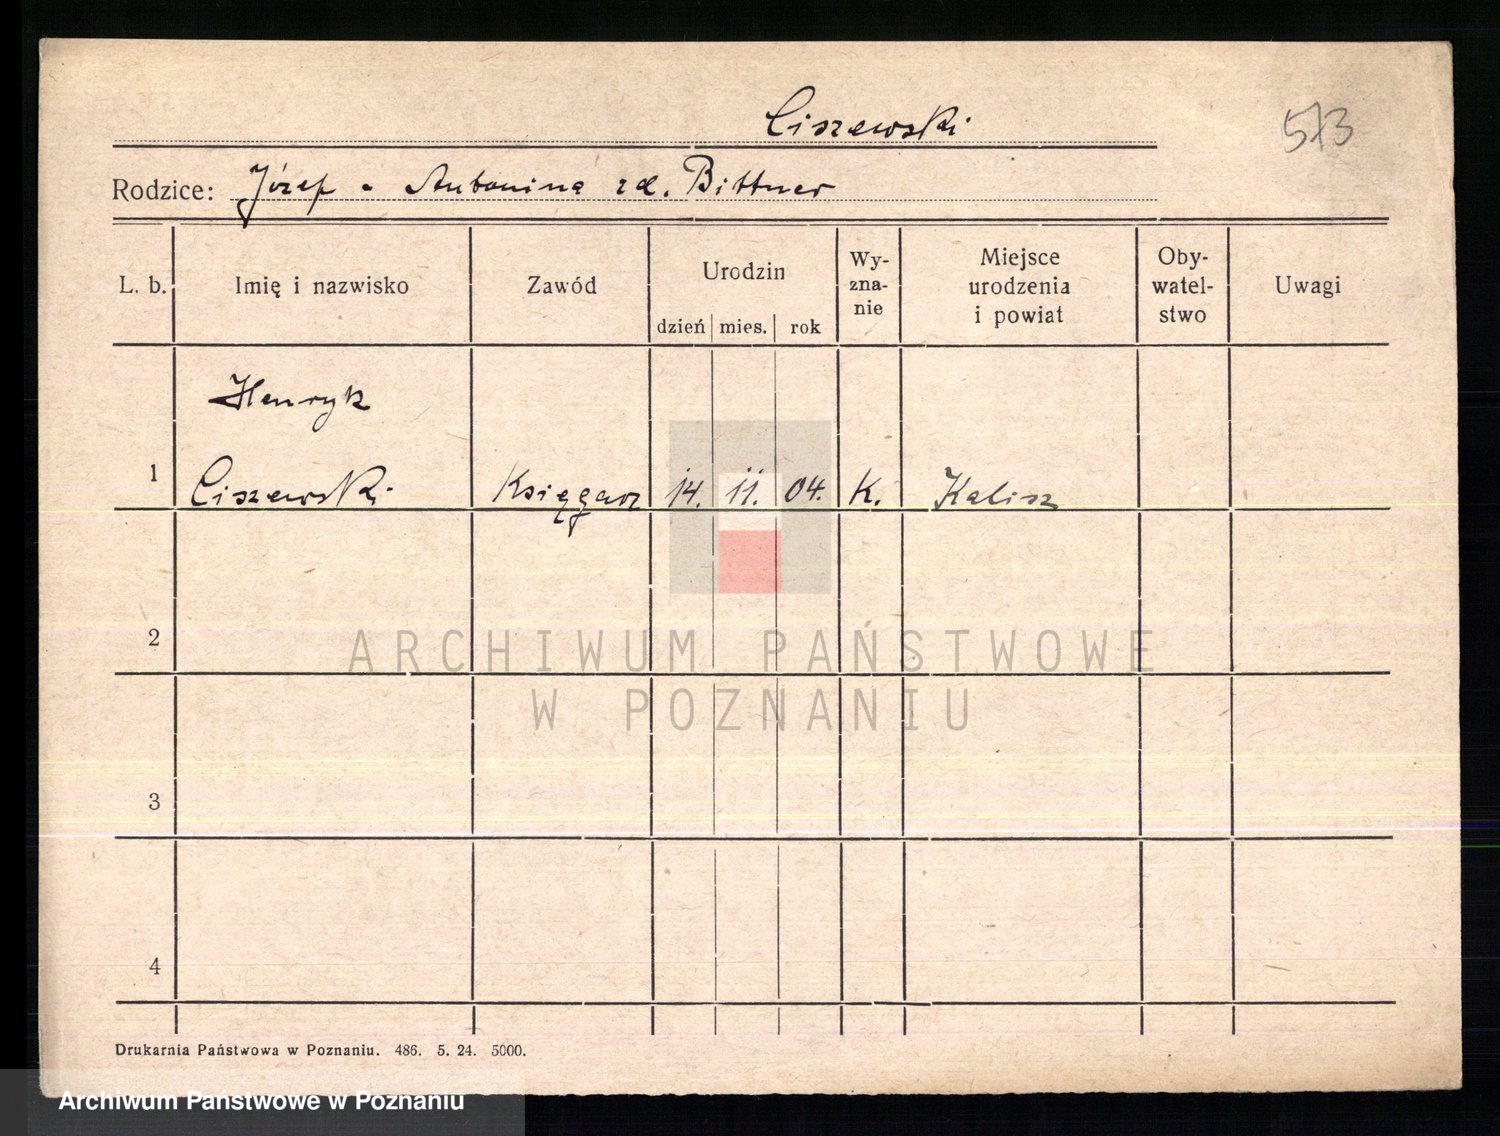 Ciszewski
573
Rodzice: Józef - Antonina zd. Bittner
L. b.
Imię i nazwisko
Zawód
Urodzin
dzień mies. rok
Wy-
zna-
nie
Miejsce
urodzenia
i powiat
Oby-
watel-
stwo
Uwagi
Henryk
1 Ciszewski Księgarz 14. 11. 04. K. Kalisz
2
ARCHIWUM PAŃSTWOWE
W POZNANIU
3
4
Drukarnia Państwowa w Poznaniu. 486. 5. 24. 5000.
Archiwum Państwowe w Poznaniu